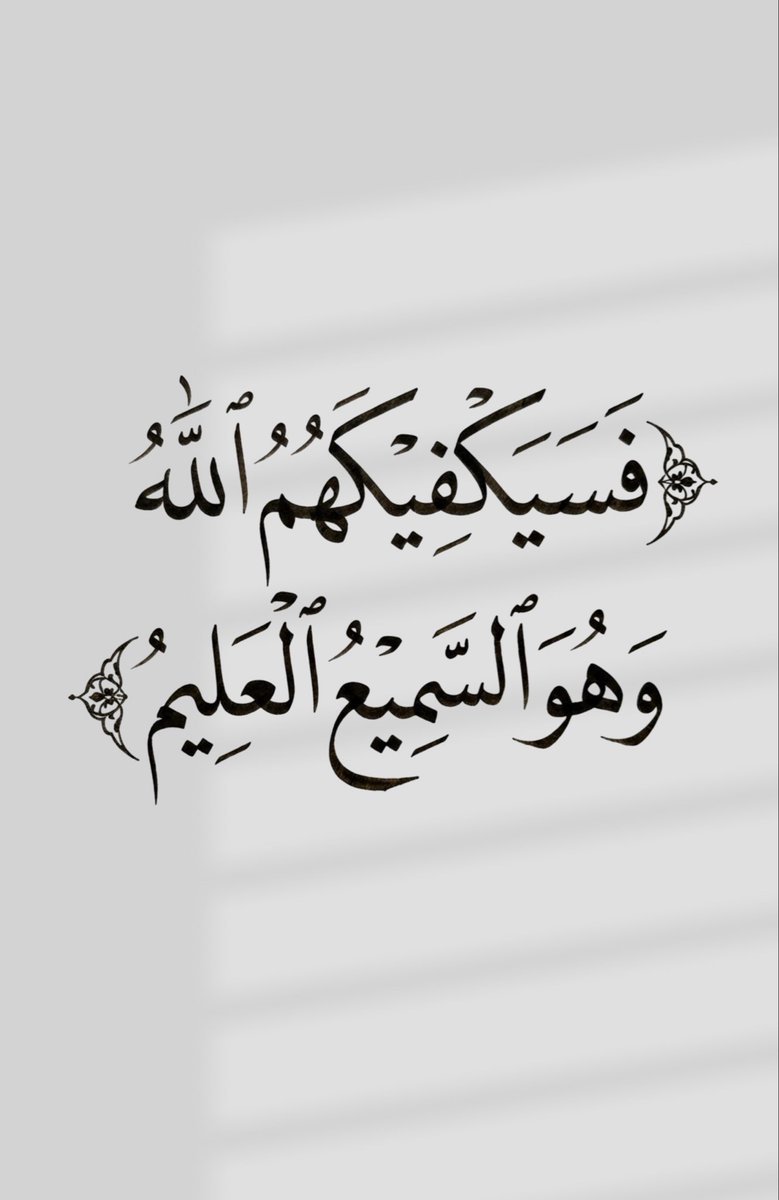 ﴿فَسَيَكْفِيْكَهُمُ ٱللَّٰهُ
وَهُوَ ٱلسَّمِيْعُ ٱلْعَلِيمُ﴾